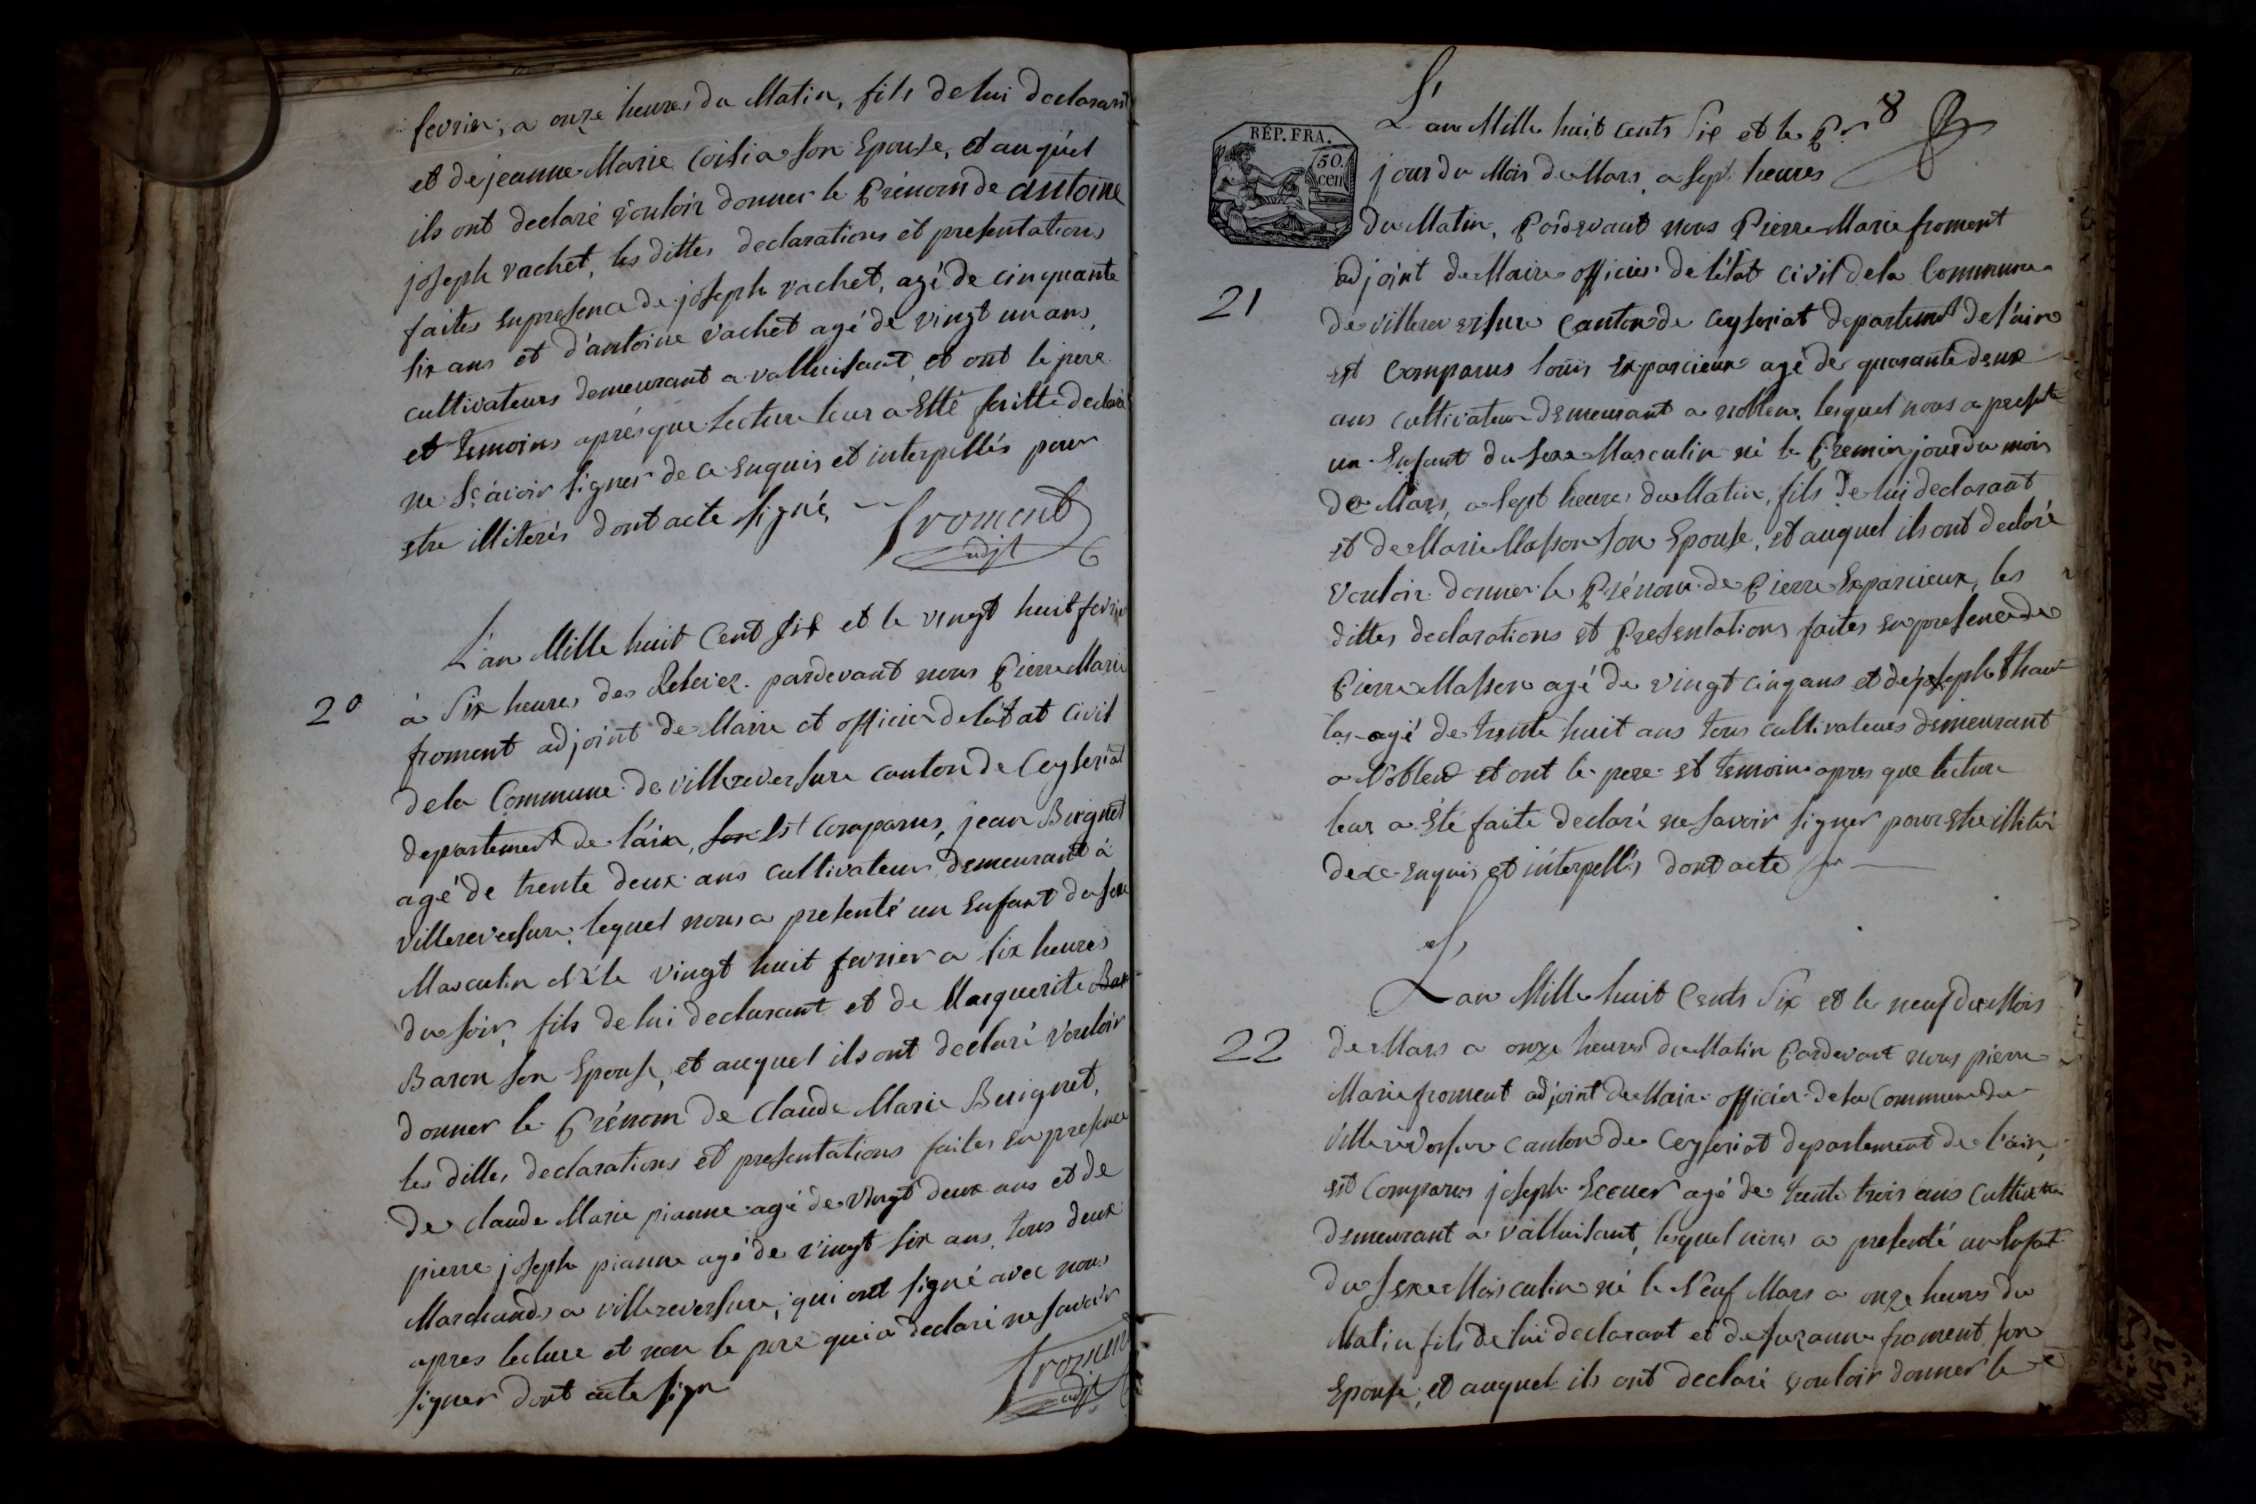 fevrier, a onze heures du Matin, fils de lui declarant
et de jeanne Marie Coisia son Epouse, et auquel
ils ont declaré vouloir donner le Prénom de antoine
joseph vachet, les dittes declarations et presentations
faites en presence de joseph vachet, agé de cinquante
six ans et d'antoine vachet agé de vingt un ans,
cultivateurs demeurant a valluisant, et ont le pere
et temoins après que lecture leur a Etté faritte declaré
ne sçavoir signer de ce enquis et interpellés pour
etre illiterés dont acte signé,
froment
adjt
20
L'an Mille huit Cent six et le vingt huit fevrier
à Six heures du pardevant nous Pierre Marie
froment adjoint de Maire et officier de létat civil
de la Commune de villereversure canton de Ceyseriat
departement de l'ain, Est Comparus, jean Buignet
agé de trente deux ans cultivateur demeurant à
villereversure, lequel nous a presenté un Enfant du sexe
Masculin Né le vingt huit fevrier a six heures
du soir, fils de lui declarant et de Marguerite Bar
Baron son Epouse, et auquel ils ont declaré vouloir
donner le Prénom de Claude Marie Buignet,
les dittes declarations et presentations faites en presence
de Claude Marie pianne agé de vingt deux ans et de
pierre joseph pianne agé de vingt six ans, tous deux
Marchands a villereversure, qui ont signé avec nous
apres lecture et non le pere qui a declaré ne savoir
signer dont acte sign
froment
adjt
8
RÉP. FRA.
50.
cen
L'an Mille huit cents Six et le Pr
jour du Mois de Mars, a sept heures
du Matin, Pardevant nous Pierre Marie froment
adjoint de Maire officier de létat civil de la Commune
21
de villereversure Canton de Ceyseriat departemt de l'ain
est Comparus louis Exparcieux agé de quarante deux
ans cultivateur demeurant a noblens, lequel nous a presenté
un Enfant du sexe Masculin né le Premier jour du mois
de Mars, a sept heures du Matin, fils de lui declarant
et de Marie Masson son Epouse, et auquel ils ont declaré
vouloir donner le Prénom de Pierre Exparcieux, les
dittes declarations et Presentations faites en presence de
Pierre Masson agé de vingt cinq ans et de joseph
agé de trente huit ans tous cultivateurs demeurant
a Noblens et ont le pere et temoins apres que lecture
leur a été faite declaré ne savoir signer pour etre illiteré
de ce enquis et interpellés dont acte
L'an Mille huit Cents Six et le neuf du Mois
22
de Mars a onze heures du Matin Pardevant nous pierre
Marie froment adjoint de Maire officier de la Commune de
villereversure Canton de Ceyseriat departement de l'ain,
est Comparus joseph agé de trente trois ans Cultivateur
demeurant a valluisant, lequel nous a presenté un Enfant
du sexe Masculin né le Neuf Mars a onze heures du
Matin fils de lui declarant et de suzanne froment son
Epouse, et auquel ils ont declaré vouloir donner le